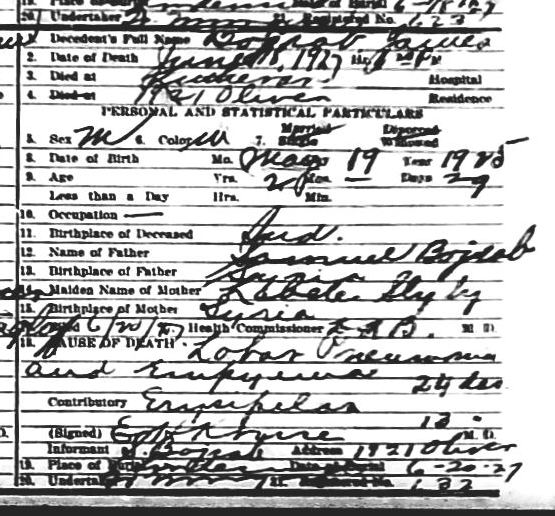 19. Place of Burial Date of Burial 6-18-27
20. Undertaker 21. Registered No. 623
Decedent's Full Name Bojrab James
2. Date of Death June 18, 1927 Hr. PM
3. Died at Lutheran Hospital
4. Died at 1921 Oliver Residence
PERSONAL AND STATISTICAL PARTICULARS
5. Sex M 6. Color W 7. Married Single Divorced Widowed
8. Date of Birth Mo. May 19 Year 1925
9. Age Yrs. 2 Mos. — Days 29
Less than a Day Hrs. Min.
10. Occupation —
11. Birthplace of Deceased Ind.
12. Name of Father Samuel Bojrab
13. Birthplace of Father Syria
Maiden Name of Mother
15. Birthplace of Mother Syria
6/20/27 Health Commissioner M. D.
18. CAUSE OF DEATH Lobar Pneumonia
and Empyema 24 das
Contributory Erysipelas
12 "
(Signed) M. D.
Informant S. Bojrab Address 1921 Oliver
19. Place of Burial Date of Burial 6-20-27
20. Undertaker 21. Registered No. 632